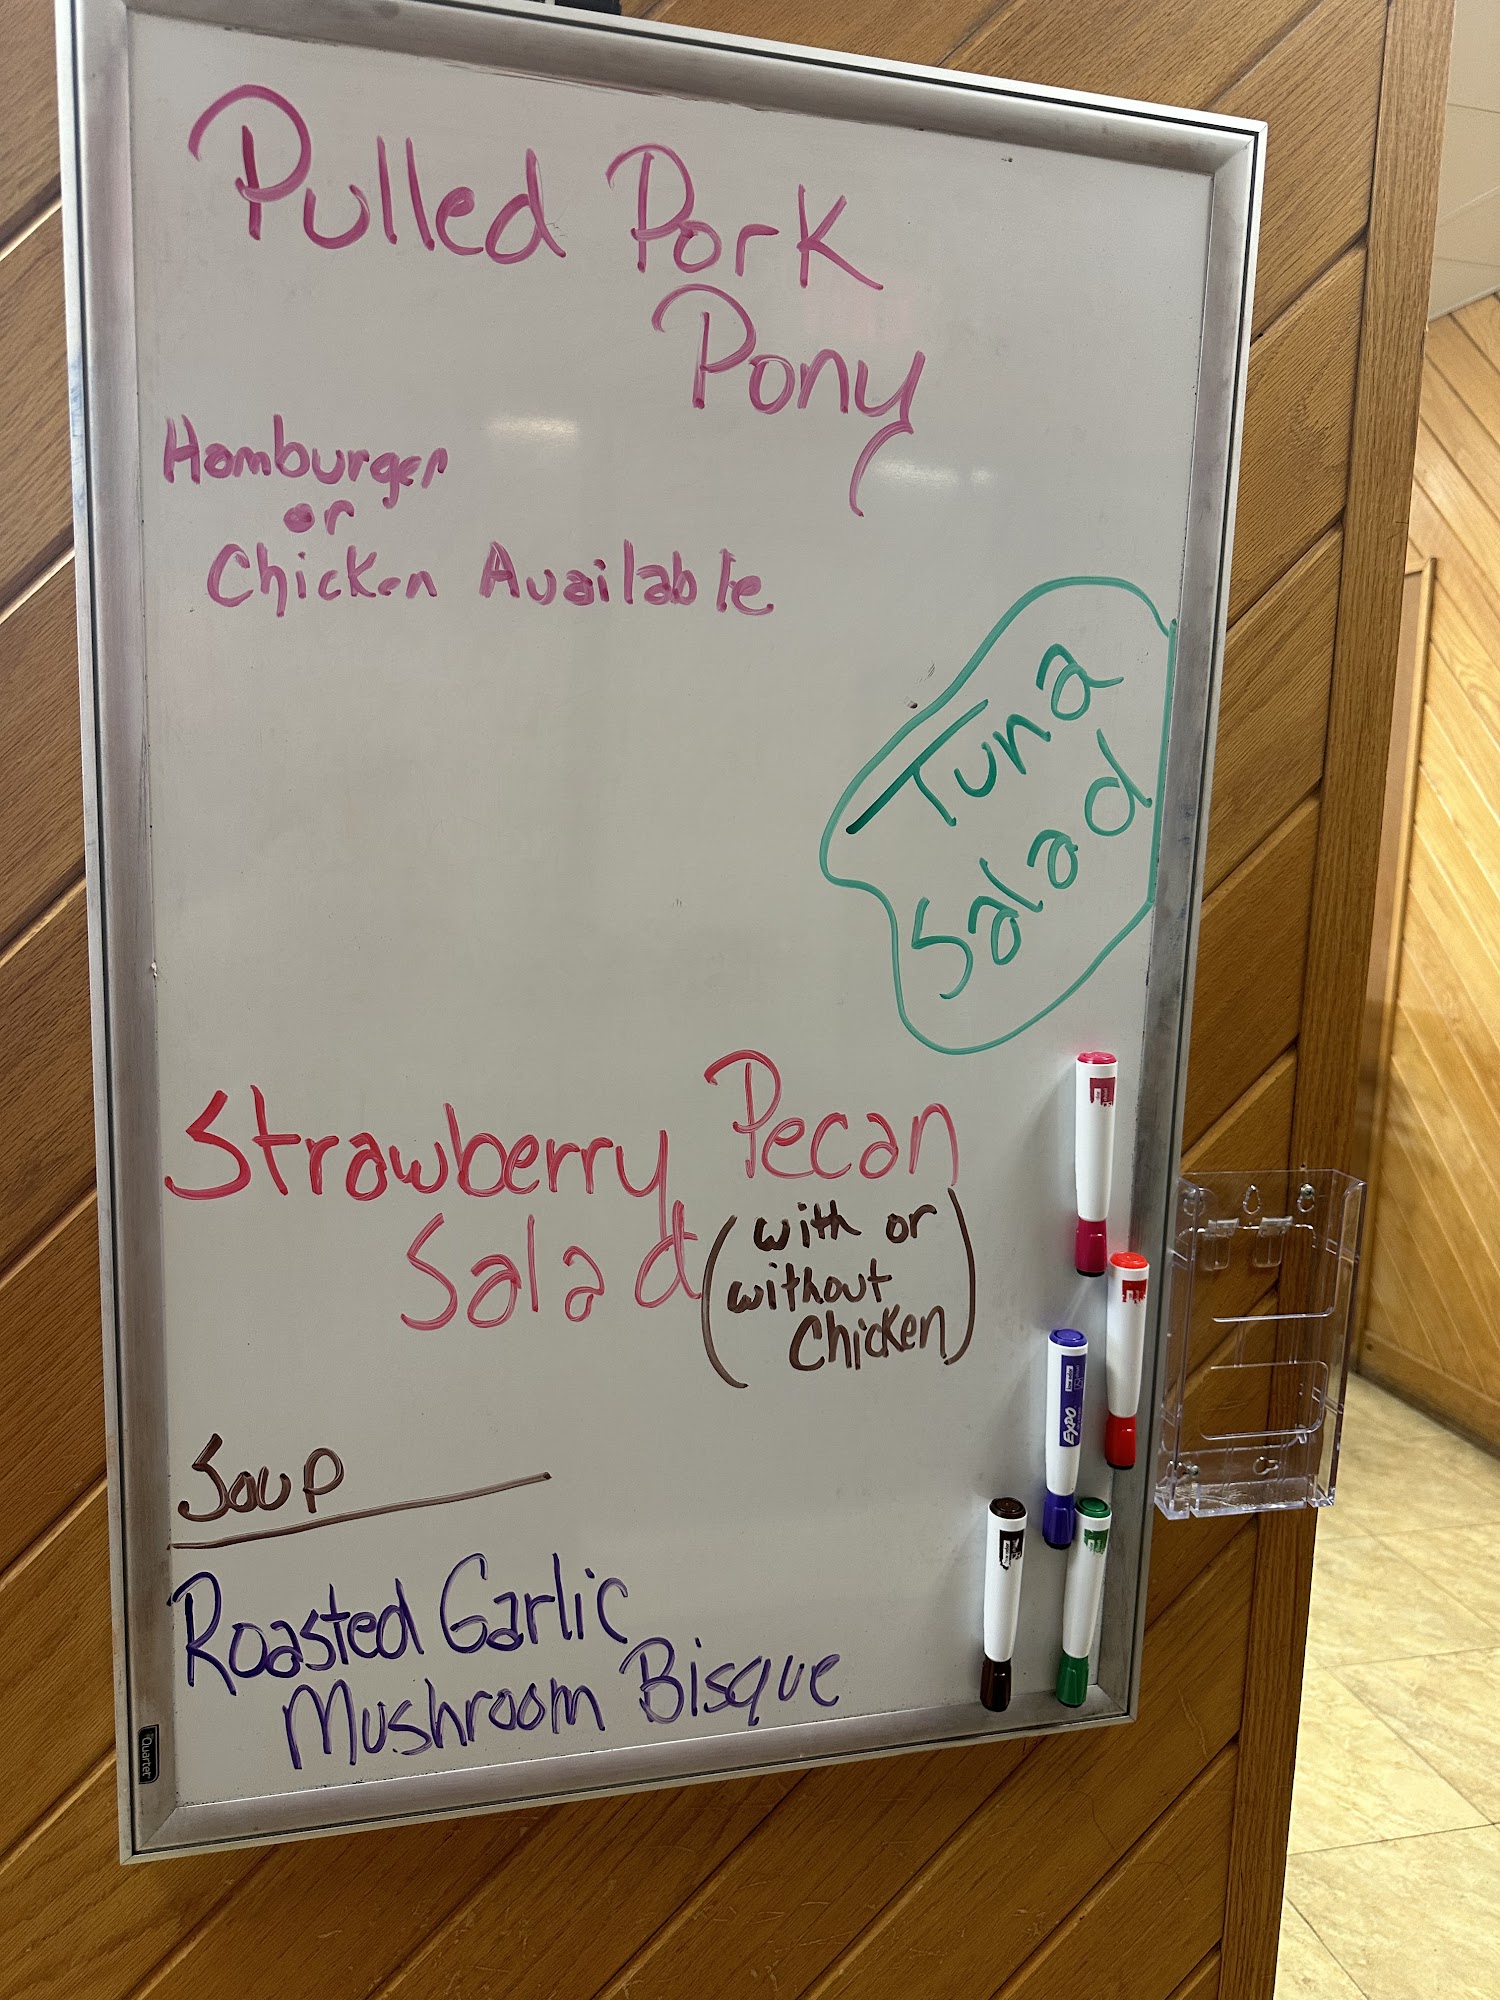 Pulled Pork
Pony
Hamburger
or
Chicken Available
Tuna
Salad
Strawberry Pecan
Salad (with or
without
Chicken)
Soup
Roasted Garlic
Mushroom Bisque
EXPO
Quartet